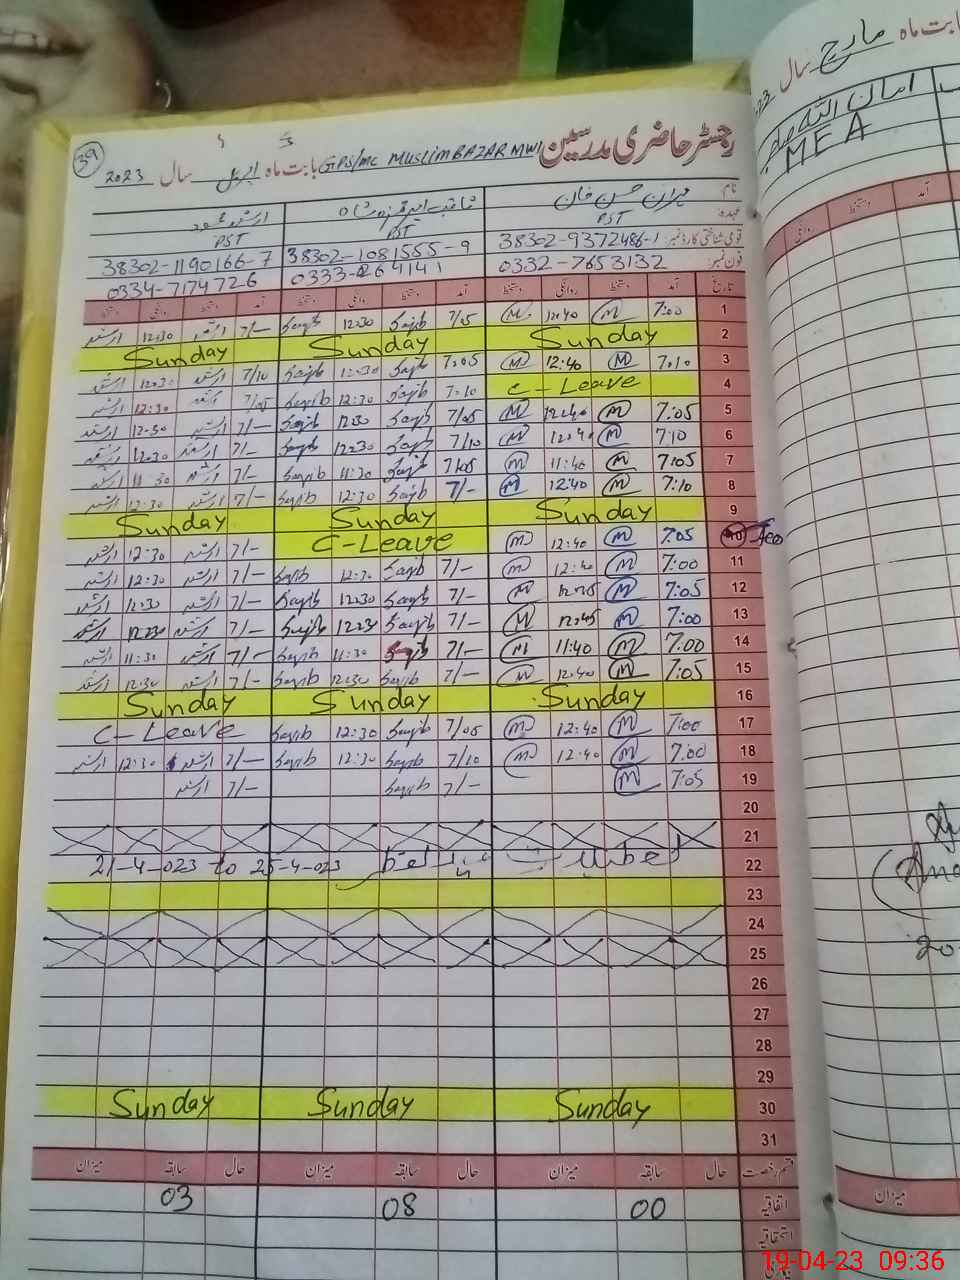 39
رجسٹر حاضری مدرسین GPS/MC MUSLIM BAZAR MWI بابت ماہ اپریل سال 2023
نام
عہدہ: PST PST PST
قومی شناختی کارڈ نمبر: 38302-9372486-1 38302-1081555-9 38302-1190166-7
فون نمبر: 0332-7653132 0334-7174726
تاریخ آمد دستخط روانگی دستخط آمد دستخط روانگی دستخط آمد دستخط روانگی دستخط
1 7:00 M 12:40 M 7/05 Saqib 12:30 Saqib 7/- ارشد 12:30 ارشد
2 Sunday Sunday Sunday
3 7:10 M 12:40 M 7:05 Saqib 12:30 Saqib 7/10 ارشد 12:30 ارشد
4 C-Leave 7:10 Saqib 12:30 Saqib 7/05 ارشد 12:30 ارشد
5 7:05 M 12:40 M 7/05 Saqib 12:30 Saqib 7/- ارشد 12:30 ارشد
6 7:10 M 12:40 M 7/10 Saqib 12:30 Saqib 7/- ارشد 12:30 ارشد
7 7:05 M 11:40 M 7/05 Saqib 11:30 Saqib 7/- ارشد 11:30 ارشد
8 7:10 M 12:40 M 7/- Saqib 12:30 Saqib 7/- ارشد 12:30 ارشد
9 Sunday Sunday Sunday
10 7:05 M 12:40 M C-Leave 7/- ارشد 12:30 ارشد
11 7:00 M 12:40 M 7/- Saqib 12:30 Saqib 7/- ارشد 12:30 ارشد
12 7:05 M M 7/- Saqib 12:30 Saqib 7/- ارشد 12:30 ارشد
13 7:00 M 12:45 M 7/- Saqib 12:30 Saqib 7/- ارشد 12:30 ارشد
14 7:00 M 11:40 M 7/- Saqib 11:30 Saqib 7/- ارشد 11:30 ارشد
15 7:05 M 12:40 M 7/- Saqib 12:30 Saqib 7/- ارشد 12:30 ارشد
16 Sunday Sunday Sunday
17 7:00 M 12:40 M 7/05 Saqib 12:30 Saqib C-Leave
18 7:00 M 12:40 M 7/10 Saqib 12:30 Saqib 7/- ارشد 12:30 ارشد
19 7:05 M 7/- Saqib 7/- ارشد
20
21
22 21-4-023 to 25-4-023
23
24
25
26
27
28
29
30 Sunday Sunday Sunday
31
قسم رخصت حال سابقہ میزان حال سابقہ میزان حال سابقہ میزان
اتفاقیہ 00 08 03
استحقاقیہ
بابت ماہ مارچ سال
امان اللہ
MEA
آمد دستخط روانگی
میزان
19-04-23 09:36